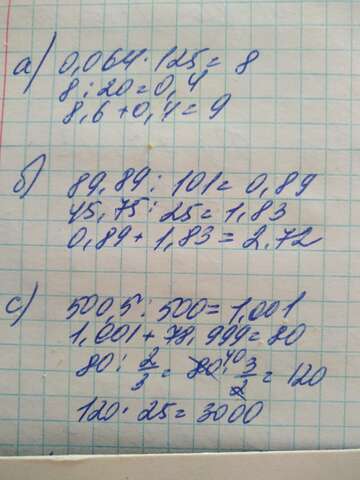 а) 0,064 · 125 = 8
8 : 20 = 0,4
8,6 + 0,4 = 9
б) 89,89 : 101 = 0,89
45,75 : 25 = 1,83
0,89 + 1,83 = 2,72
с) 500,5 : 500 = 1,001
1,001 + 78,999 = 80
80 : 2/3 = 80 40 · 3/2 = 120
120 · 25 = 3000